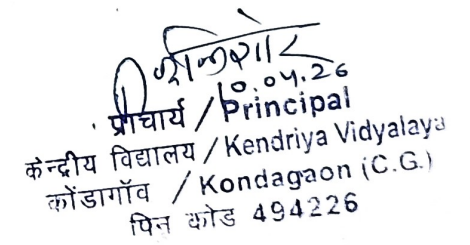 10.04.26
प्राचार्य / Principal
केन्द्रीय विद्यालय / Kendriya Vidyalaya
कोंडागॉव / Kondagaon (C.G.)
पिन कोड 494226